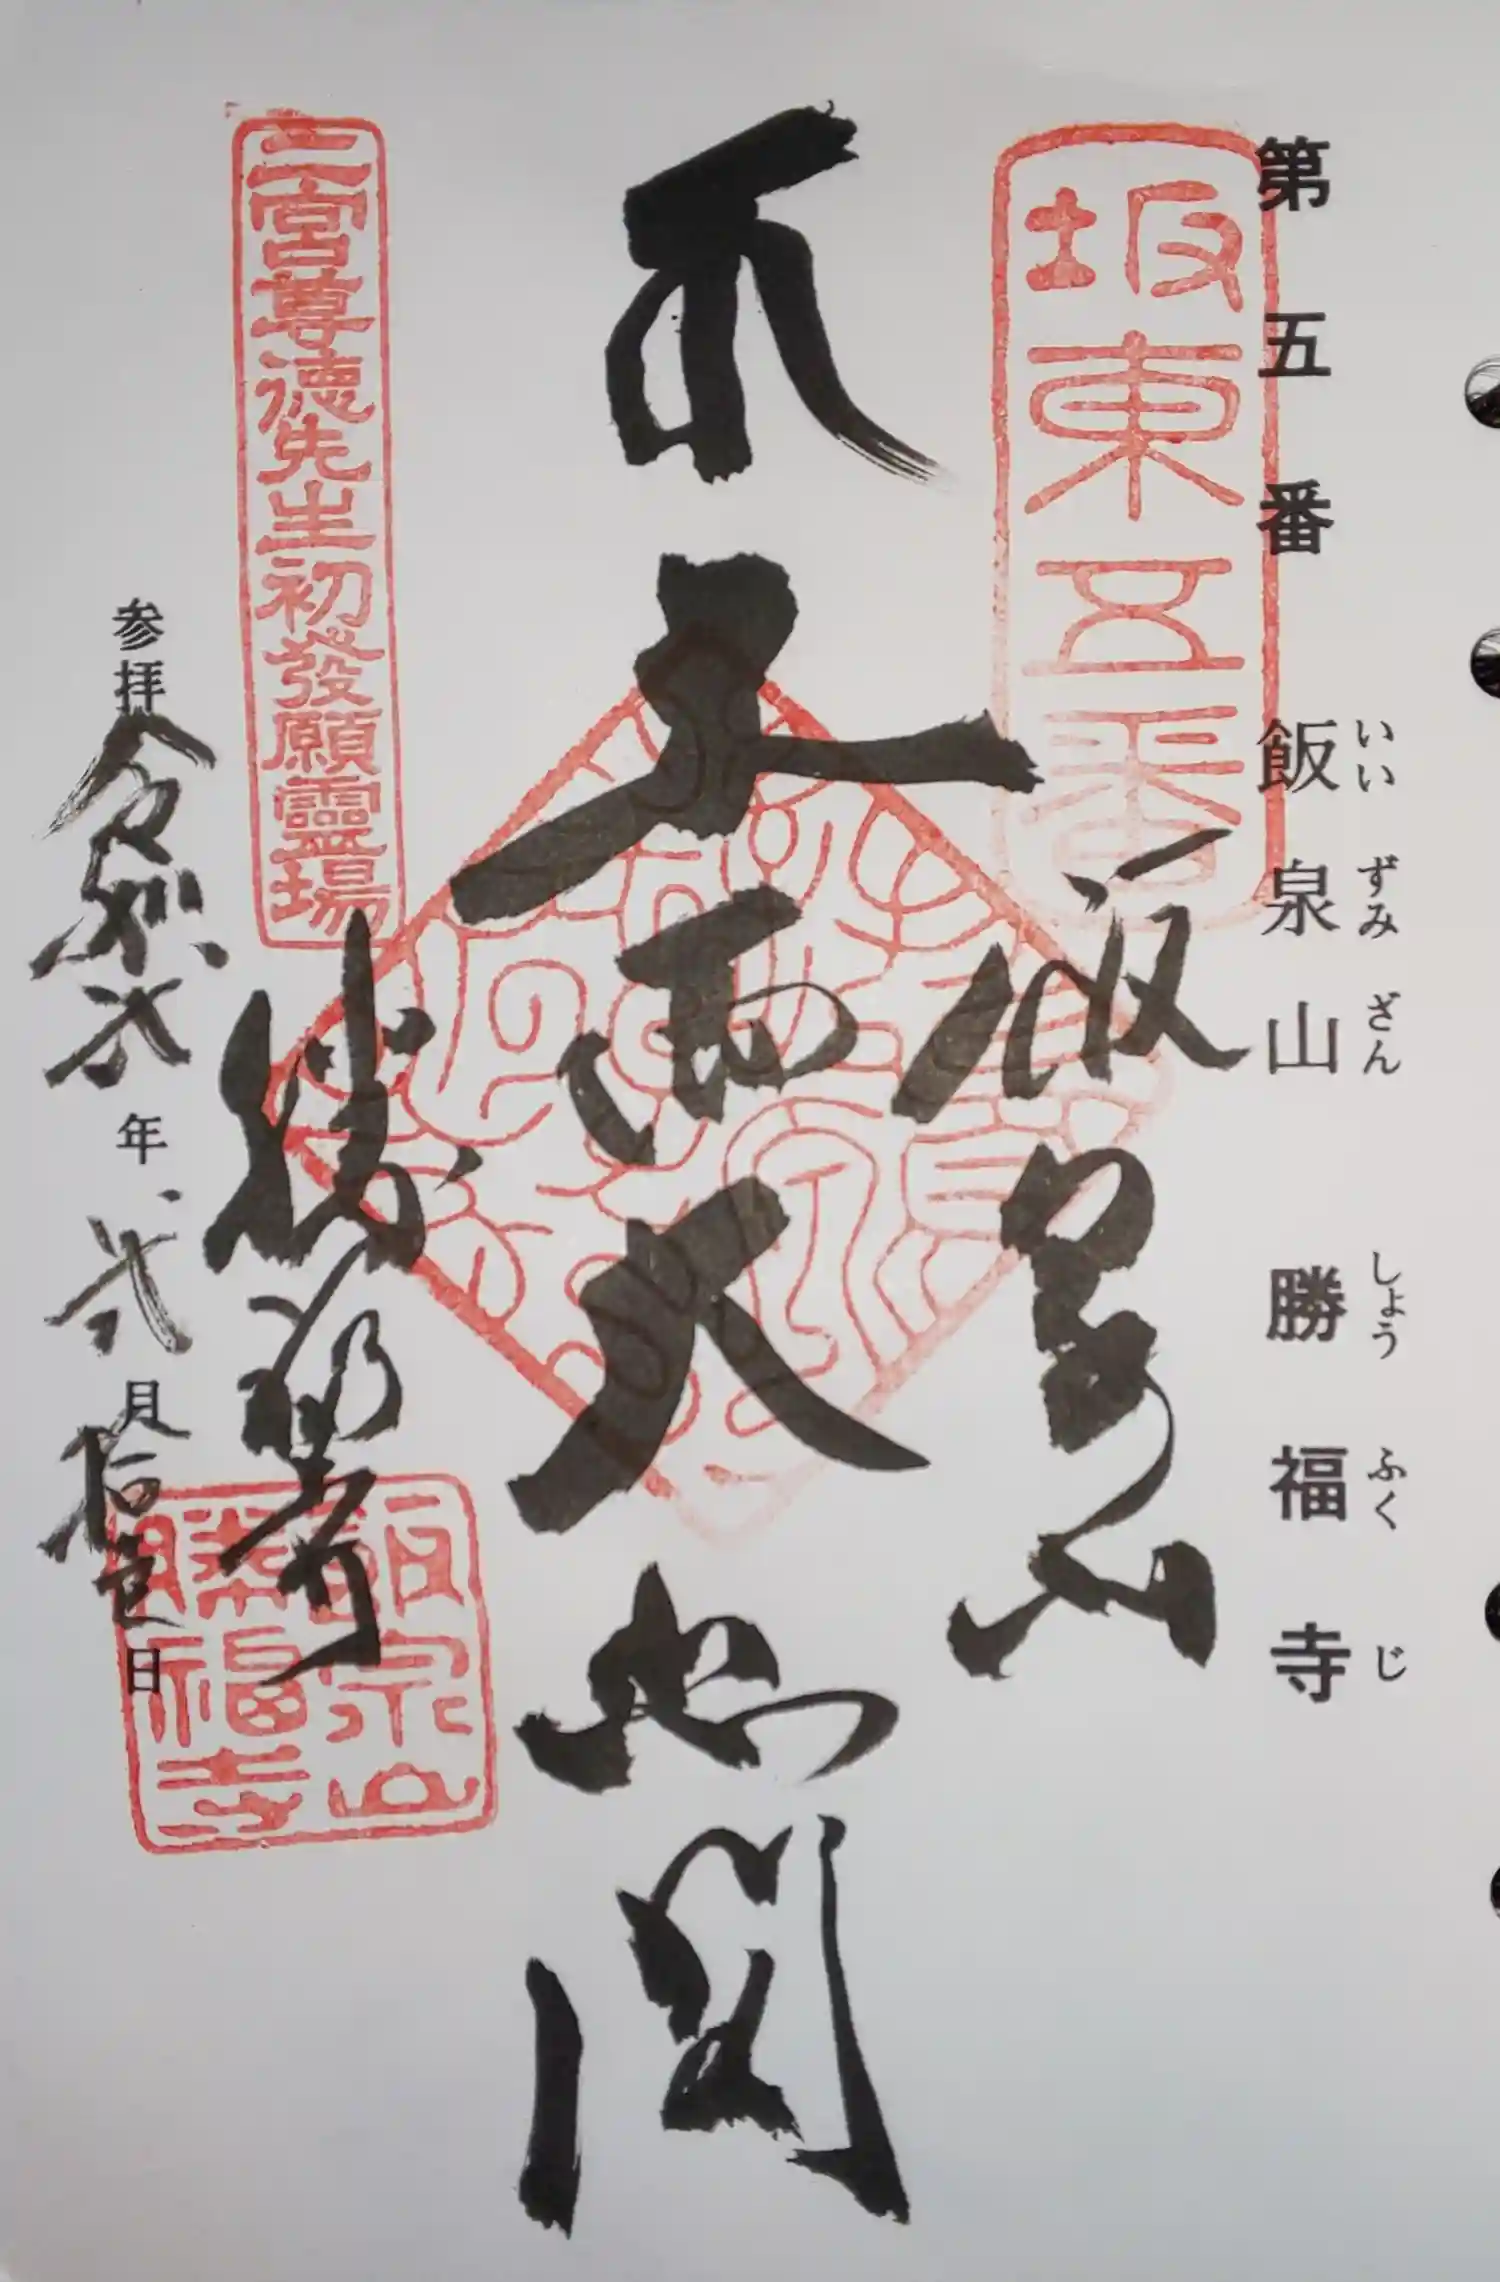 第五番 飯泉山 勝福寺
いいずみざん しょうふくじ
坂東五番
飯泉山
大悲閣
勝福寺
二宮尊德先生初發願靈場
飯泉山
勝福寺
参拝 令和弐年 弐月 拾壱日